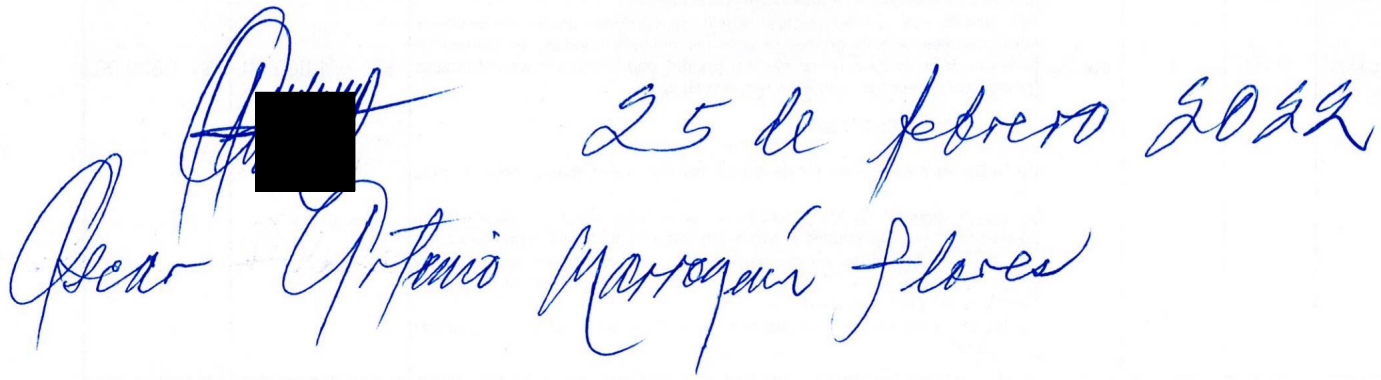 25 de febrero 2022
Oscar Antonio Marroquín Flores